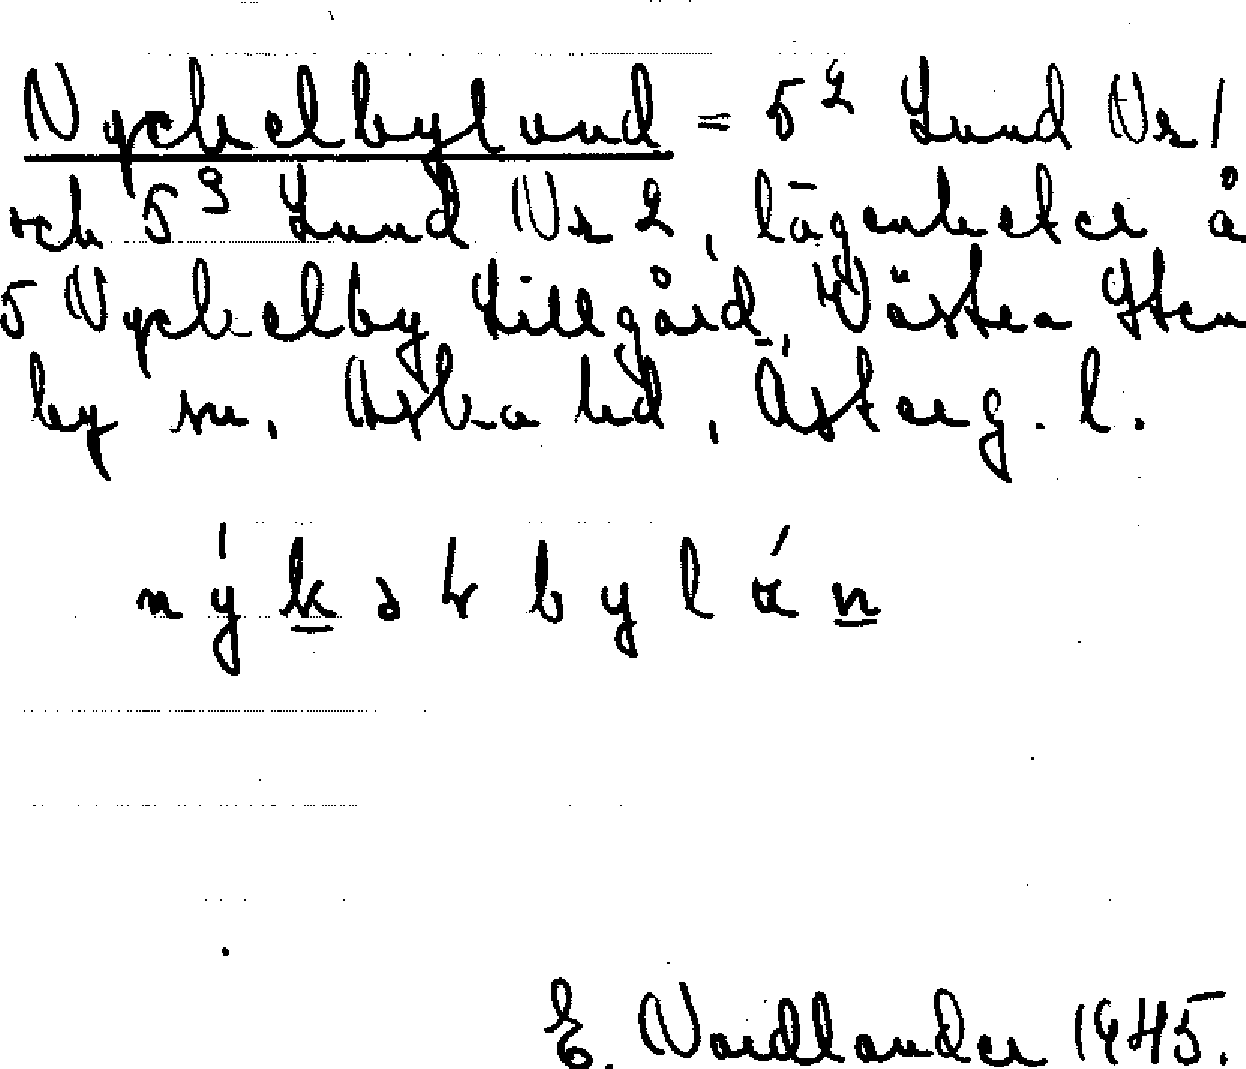 Nyckelbylund = 5² Lund Nr 1
och 5³ Lund Nr 2, lägenheter å
5 Nyckelby Lillgård, Västra Sten
by sn, Aska hd, Österg. l.
E. Nordlander 1945.